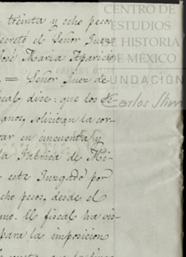 treinta y ocho pesos
ecretó el Señor Juez
José Maria Aparicio
= Señor Juez de
cal dice: que los
anos, solicitan la cor
ar en cincuenta y
la Fabrica de
este Juzgado por
cho pesos, desde el
mo. El fiscal ha vis
para la imposicion
CENTRO DE
ESTUDIOS
DE HISTORIA
DE MÉXICO
FUNDACIÓN
Carlos Slim